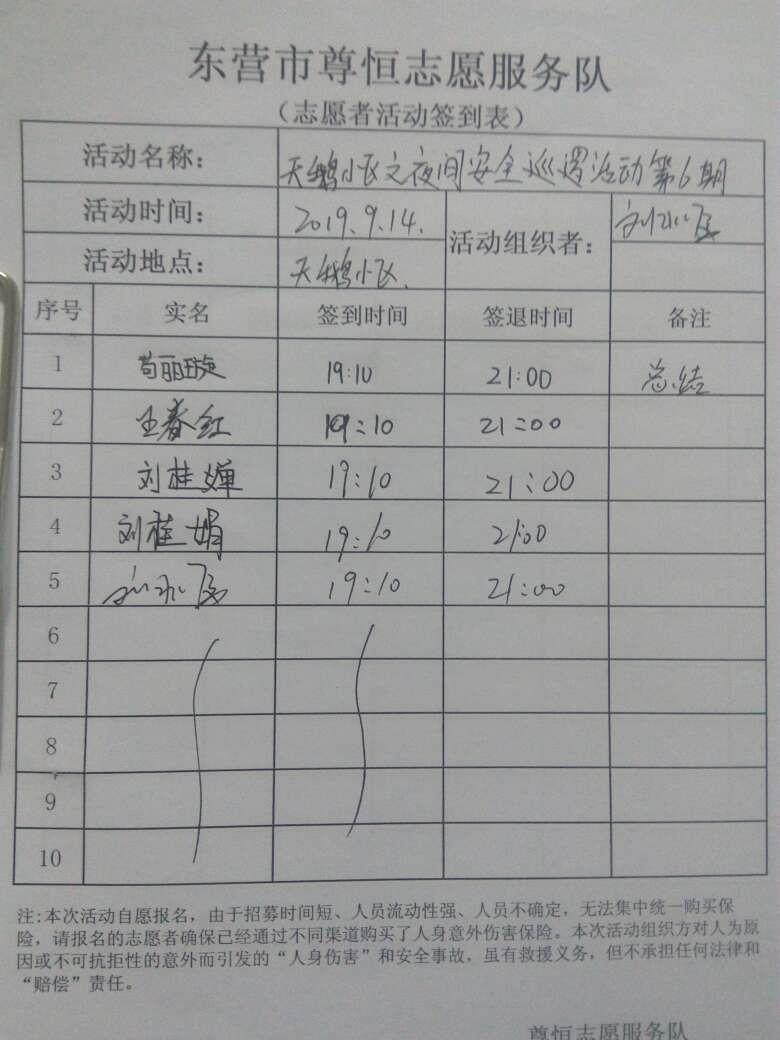 东营市尊恒志愿服务队
(志愿者活动签到表)
活动名称: 天鹅小区文夜间安全巡逻活动第6期
活动时间: 2019.9.14. 活动组织者: 刘
活动地点: 天鹅小区.
序号 实名 签到时间 签退时间 备注
1 苟丽璇 19:10 21:00 总结
2 王春红 19:10 21:00
3 刘桂婵 19:10 21:00
4 刘桂娟 19:10 21:00
5 刘 19:10 21:00
6
7
8
9
10
注:本次活动自愿报名，由于招募时间短、人员流动性强、人员不确定，无法集中统一购买保
险，请报名的志愿者确保已经通过不同渠道购买了人身意外伤害保险。本次活动组织方对人为原
因或不可抗拒性的意外而引发的“人身伤害”和安全事故，虽有救援义务，但不承担任何法律和
“赔偿”责任。
尊恒志愿服务队